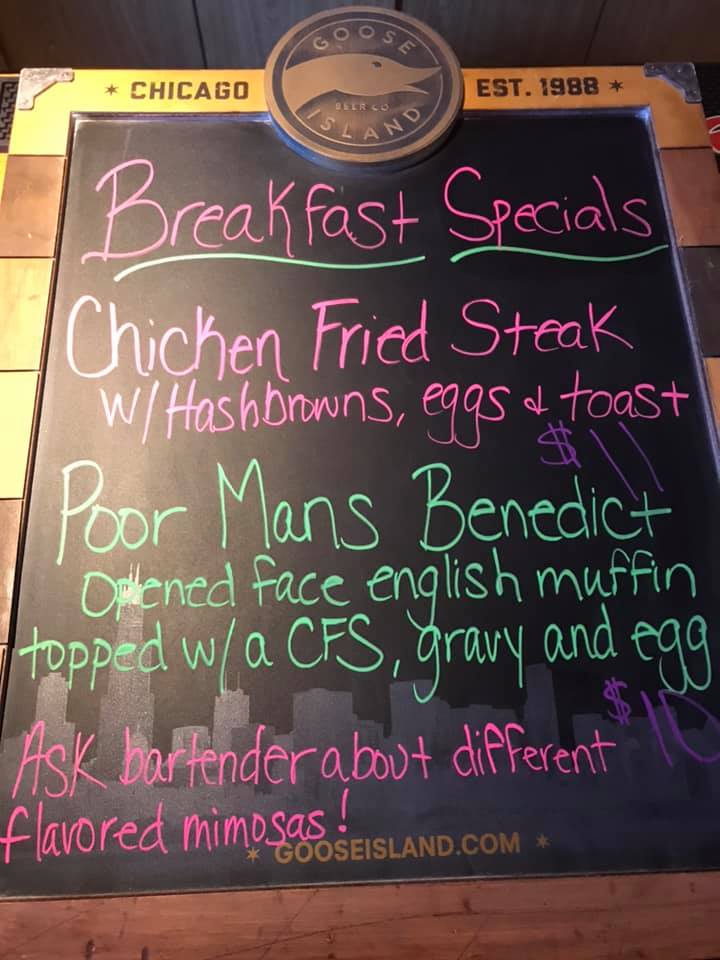 GOOSE
BEER CO
ISLAND
* CHICAGO
EST. 1988 *
Breakfast Specials
Chicken Fried Steak
w/Hashbrowns, eggs & toast
$11
Poor Mans Benedict
opened face english muffin
topped w/a CFS, gravy and egg
$10
Ask bartender about different
flavored mimosas!
* GOOSEISLAND.COM *